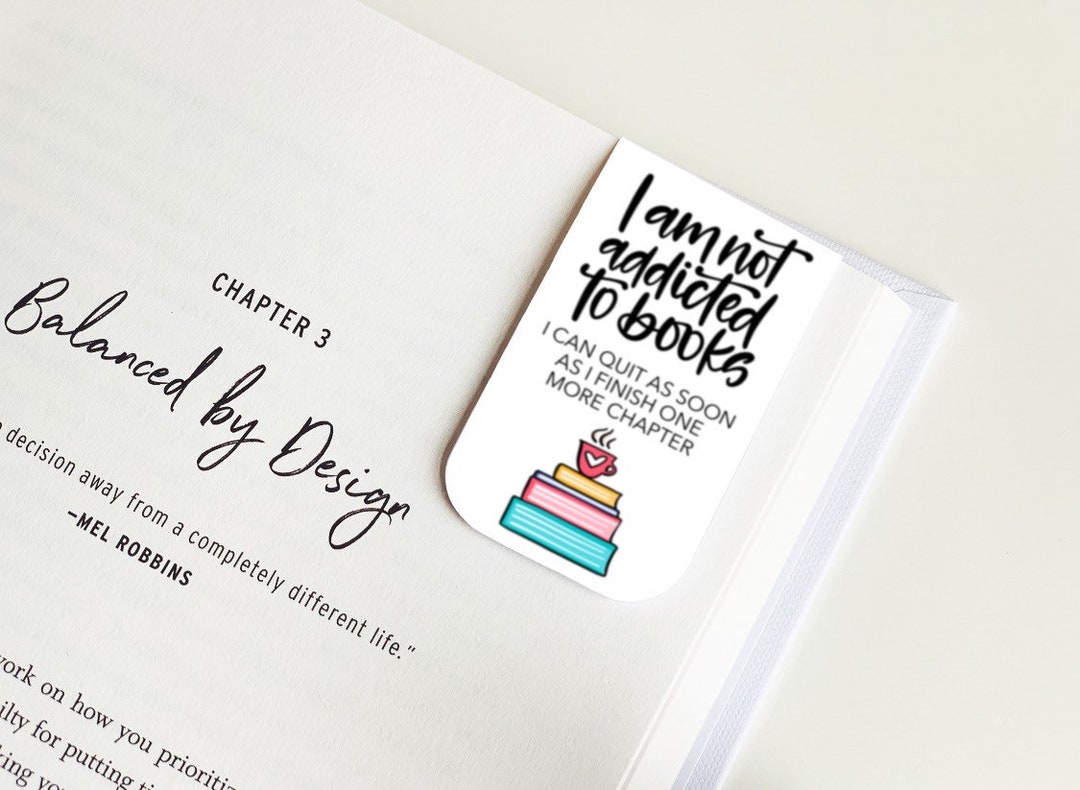 CHAPTER 3
Balanced by Design
decision away from a completely different life.”
–MEL ROBBINS
on how you
for putting
I am not
addicted
to books
I CAN QUIT AS SOON
AS I FINISH ONE
MORE CHAPTER